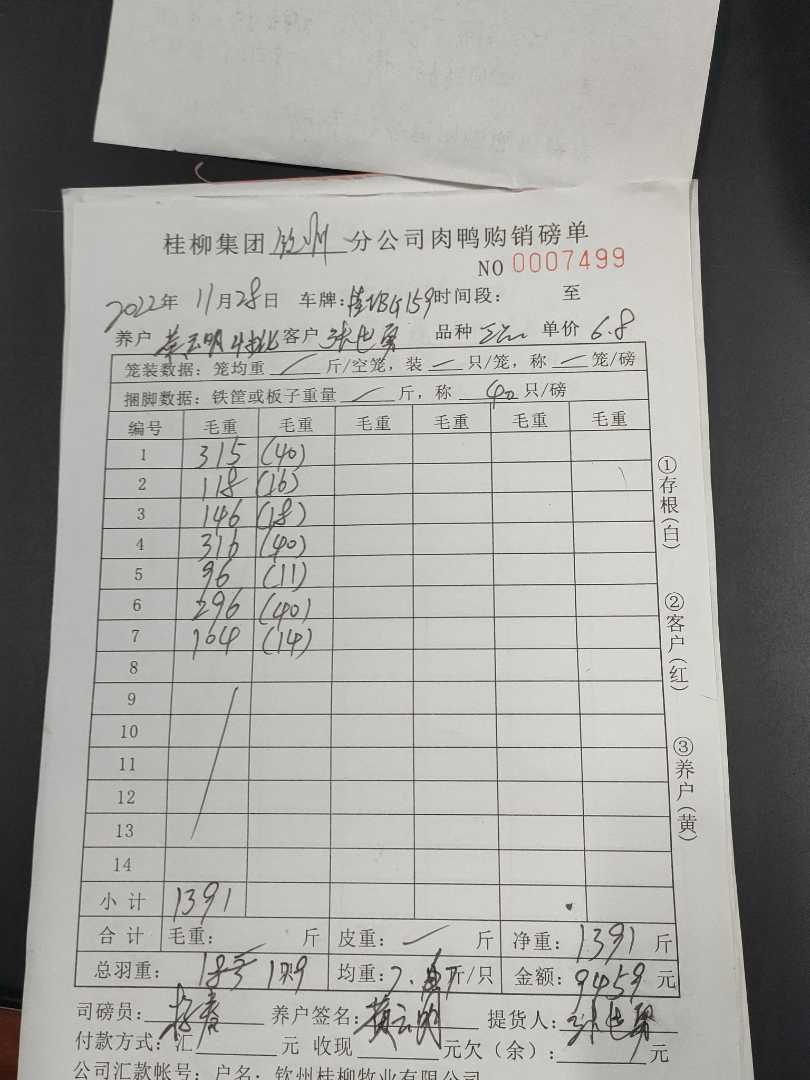 桂柳集团 钦州 分公司肉鸭购销磅单
NO 0007499
2022年 11月28日 车牌:桂 BG159 时间段: 至
养户 黄云明 客户 张 勇 品种 单价 6.8
笼装数据:笼均重 / 斤/空笼,装 一 只/笼,称 一 笼/磅
捆脚数据:铁筐或板子重量 / 斤,称 40 只/磅
编号 毛重 毛重 毛重 毛重 毛重 毛重
1 315 (40)
2 118 (16)
3 146 (18)
4 316 (40)
5 96 (11)
6 296 (40)
7 104 (14)
8
9
10
11
12
13
14
小计 1391
合计 毛重: 斤 皮重: 斤 净重: 1391 斤
总羽重: 179 均重: 7. 斤/只 金额: 9459 元
司磅员: 养户签名: 黄云明 提货人: 张 勇
付款方式:汇 元 收现 元欠(余): 元
公司汇款帐号:户名:钦州桂柳牧业有限公司
①存根(白)
②客户(红)
③养户(黄)